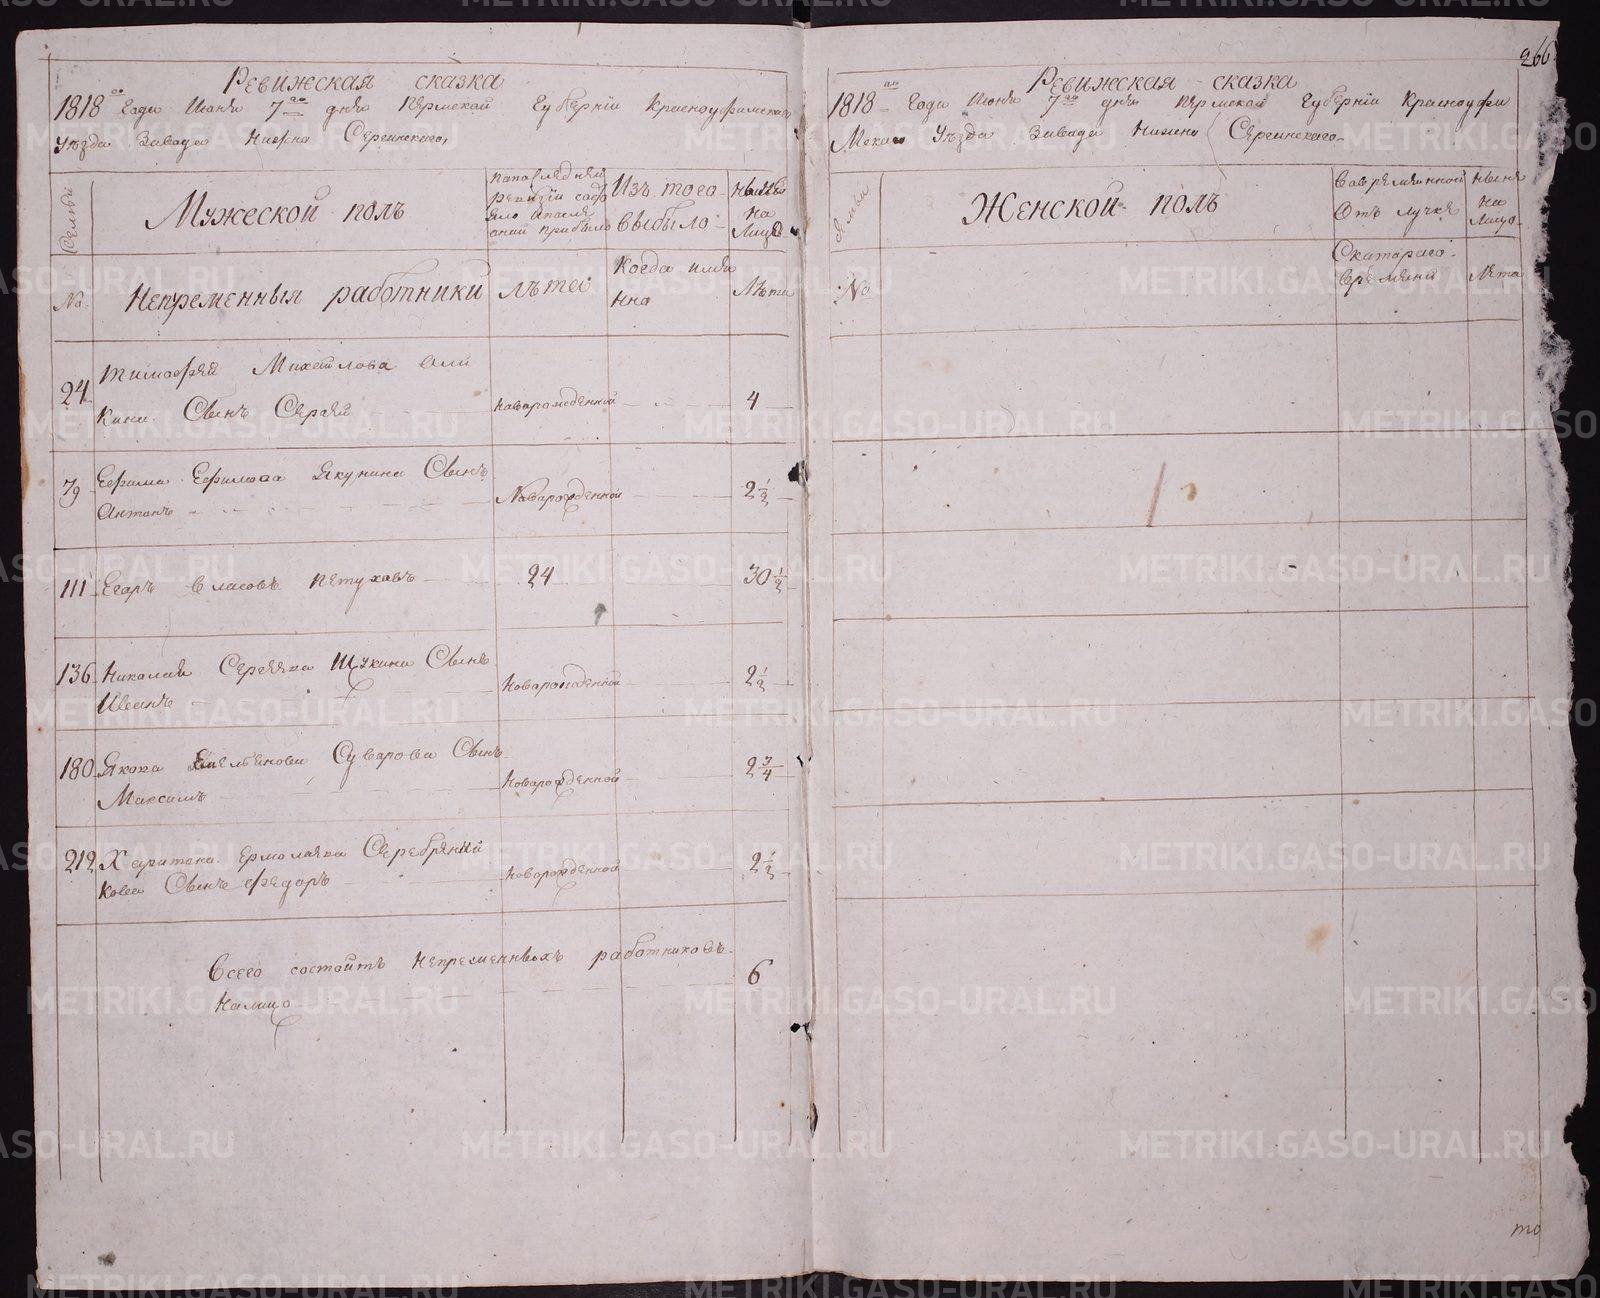 Ревижская сказка
1818го Года Июня 7го дня Пермской Губернїи Красноуфимскаго
Уѣзда Завода Нижно Сергинскаго,
Семьи
Мужеской полъ
Изъ того
выбыло
ныне
На
Лицо
№
Непременныя работники
лѣтсо
Когда имян
нно
Лѣта
24
Тимофея Михайлова Али
Кина Сынъ Сергей
Наворожденной
4
79
Ефима Ефимова Якунина Сынъ
Антонъ
Новорожденной
2 1/2
111
Егаръ Власовъ Петуховъ
24
30 1/2
136
Николая Сергеева Щукина Сынъ
Иванъ
Новорожденной
2 1/2
180
Якова Емельянова Суварова Сынъ
Максимъ
Новорожденной
2 3/4
212
Харитона Ермолаева Серебряни
кова Сынъ Федоръ
Новорожденной
2 1/2
Всего состоитъ Непременныхъ работниковъ
Налицо
6
266
Ревижская сказка
1818го Года Июня 7го дня Пермской Губернїи Красноуфи
Мскаго Уѣзда Завода Нижно Сергинскаго
№
Женской полъ
Вовременной
Отъ лучке
Ныня
на
Лицо
Скатораго
времяни
Лѣта
то
METRIKI.GASO-URAL.RU